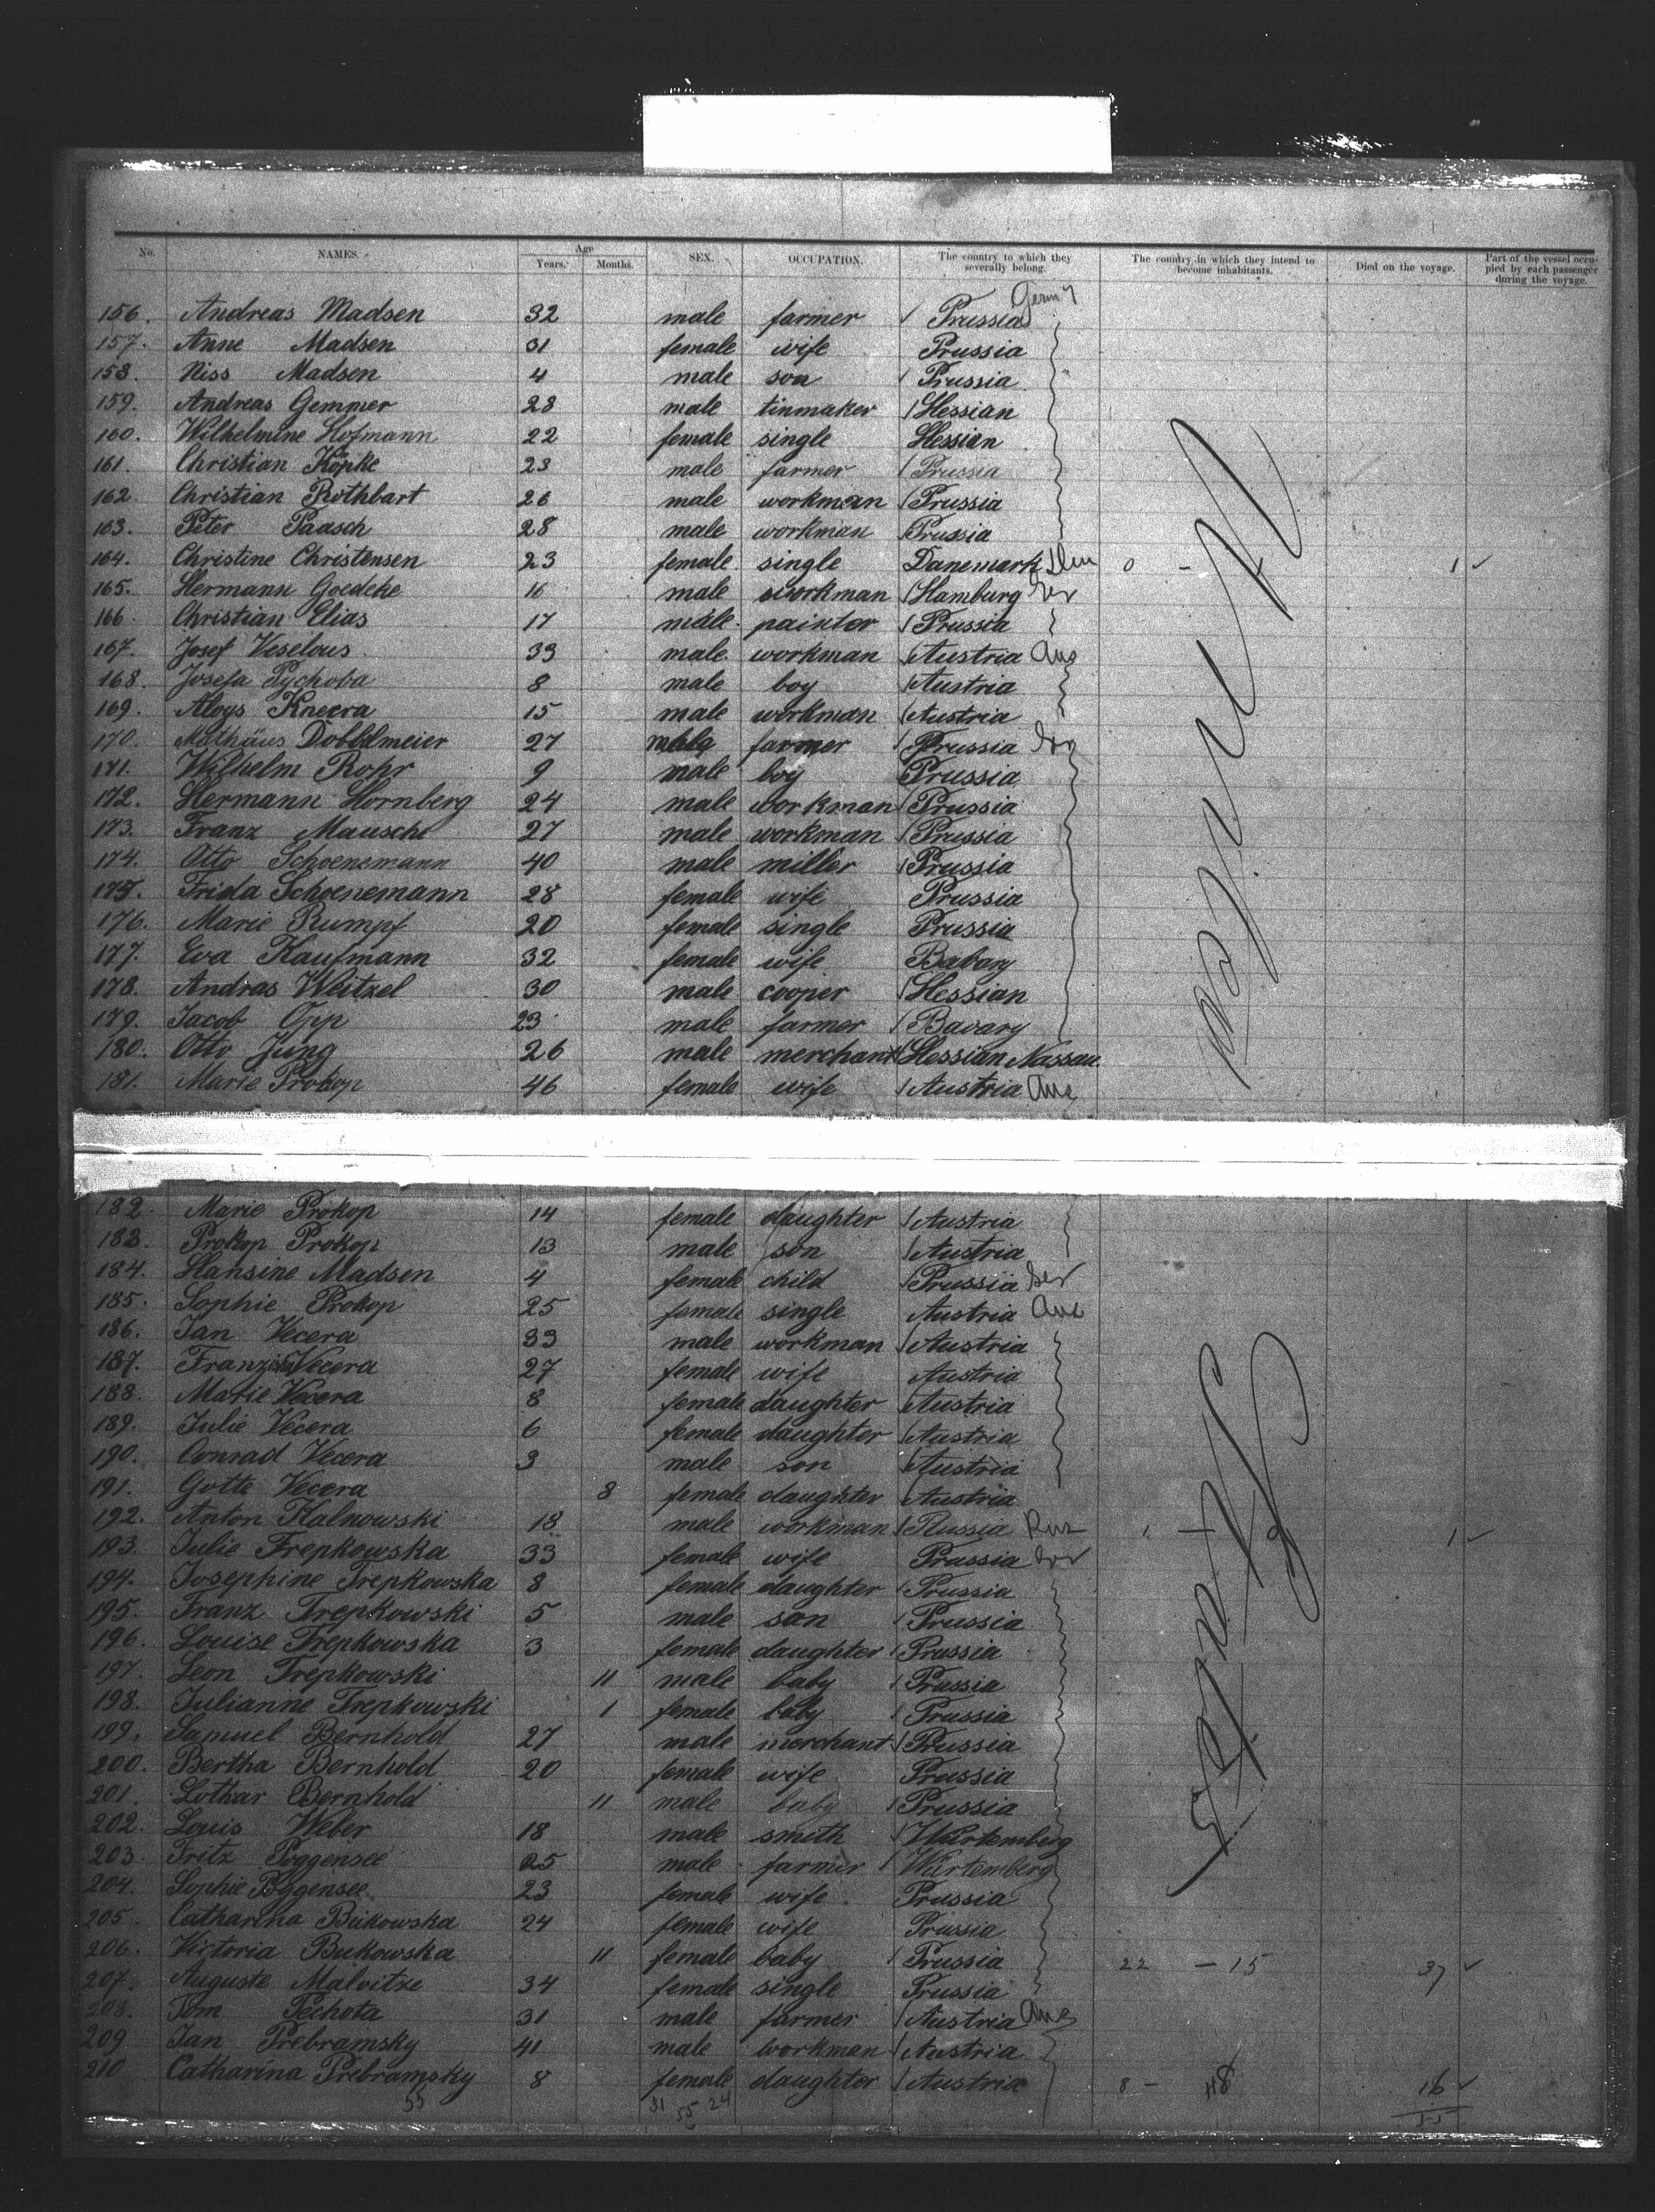 No. NAMES. Age Years. Months. SEX. OCCUPATION. The country to which they severally belong. The country in which they intend to become inhabitants. Died on the voyage. Part of the vessel occupied by each passenger during the voyage.
Germy
156. Andreas Madsen 32 male farmer Prussia
157. Anne Madsen 31 female wife Prussia
158. Niss Madsen 4 male son Prussia
159. Andreas Gemmer 28 male tinmaker Hessian
160. Wilhelmine Hofmann 22 female single Hessian
161. Christian Köpke 23 male farmer Prussia
162. Christian Rothbart 26 male workman Prussia
163. Peter Paasch 28 male workman Prussia
164. Christine Christensen 23 female single Danemark 0 - 1 ✓
165. Hermann Goedeke 16 male workman Hamburg Ger
166. Christian Elias 17 male painter Prussia
167. Josef Veselous 33 male workman Austria Aus
168. Josefa Pychoba 8 male boy Austria
169. Aloys Knecra 15 male workman Austria
170. Mathäus Dobblmeier 27 male farmer Prussia Ger
171. Wilhelm Rohr 9 male boy Prussia
172. Hermann Hornberg 24 male workman Prussia
173. Franz Mausche 27 male workman Prussia
174. Otto Schoenemann 40 male miller Prussia
175. Frida Schoenemann 28 female wife Prussia
176. Marie Rumpf 20 female single Prussia
177. Eva Kaufmann 32 female wife Babary
178. Andras Weitzel 30 male cooper Hessian
179. Jacob Opp 23 male farmer Bavary
180. Otto Jung 26 male merchant Hessian Nassau.
181. Marie Prokop 46 female wife Austria Aus
182. Marie Prokop 14 female daughter Austria
183. Prokop Prokop 13 male son Austria
184. Hansine Madsen 4 female child Prussia Ger
185. Sophie Prokop 25 female single Austria Aus
186. Jan Vecera 33 male workman Austria
187. Vecera 27 female wife Austria
188. Marie Vecera 8 female daughter Austria
189. Julie Vecera 6 female daughter Austria
190. Conrad Vecera 3 male son Austria
191. Gotte Vecera 8 female daughter Austria
192. Anton Kalnowski 18 male workman Russia Rus 1 - 1 ✓
193. Julie Trepkowska 33 female wife Prussia Ger
194. Josephine Trepkowska 8 female daughter Prussia
195. Franz Trepkowski 5 male son Prussia
196. Louise Trepkowska 3 female daughter Prussia
197. Leon Trepkowski 11 male baby Prussia
198. Julianne Trepkowski 1 female baby Prussia
199. Samuel Bernhold 27 male merchant Prussia
200. Bertha Bernhold 20 female wife Prussia
201. Lothar Bernhold 11 male baby Prussia
202. Louis Weber 18 male smith Würtemberg
203. Fritz Poggensee 25 male farmer Würtemberg
204. Sophie Poggensee 23 female wife Prussia
205. Catharina Bukowska 24 female wife Prussia
206. Victoria Bukowska 11 female baby Prussia 22 - 15 37 ✓
207. Auguste Malvitze 34 female single Prussia
208. Tom Pechota 31 male farmer Austria Aus
209. Jan Prebramsky 41 male workman Austria
210 Catharina Prebramsky 8 female daughter Austria 8 - 8 16 ✓
55 31 55 24 55